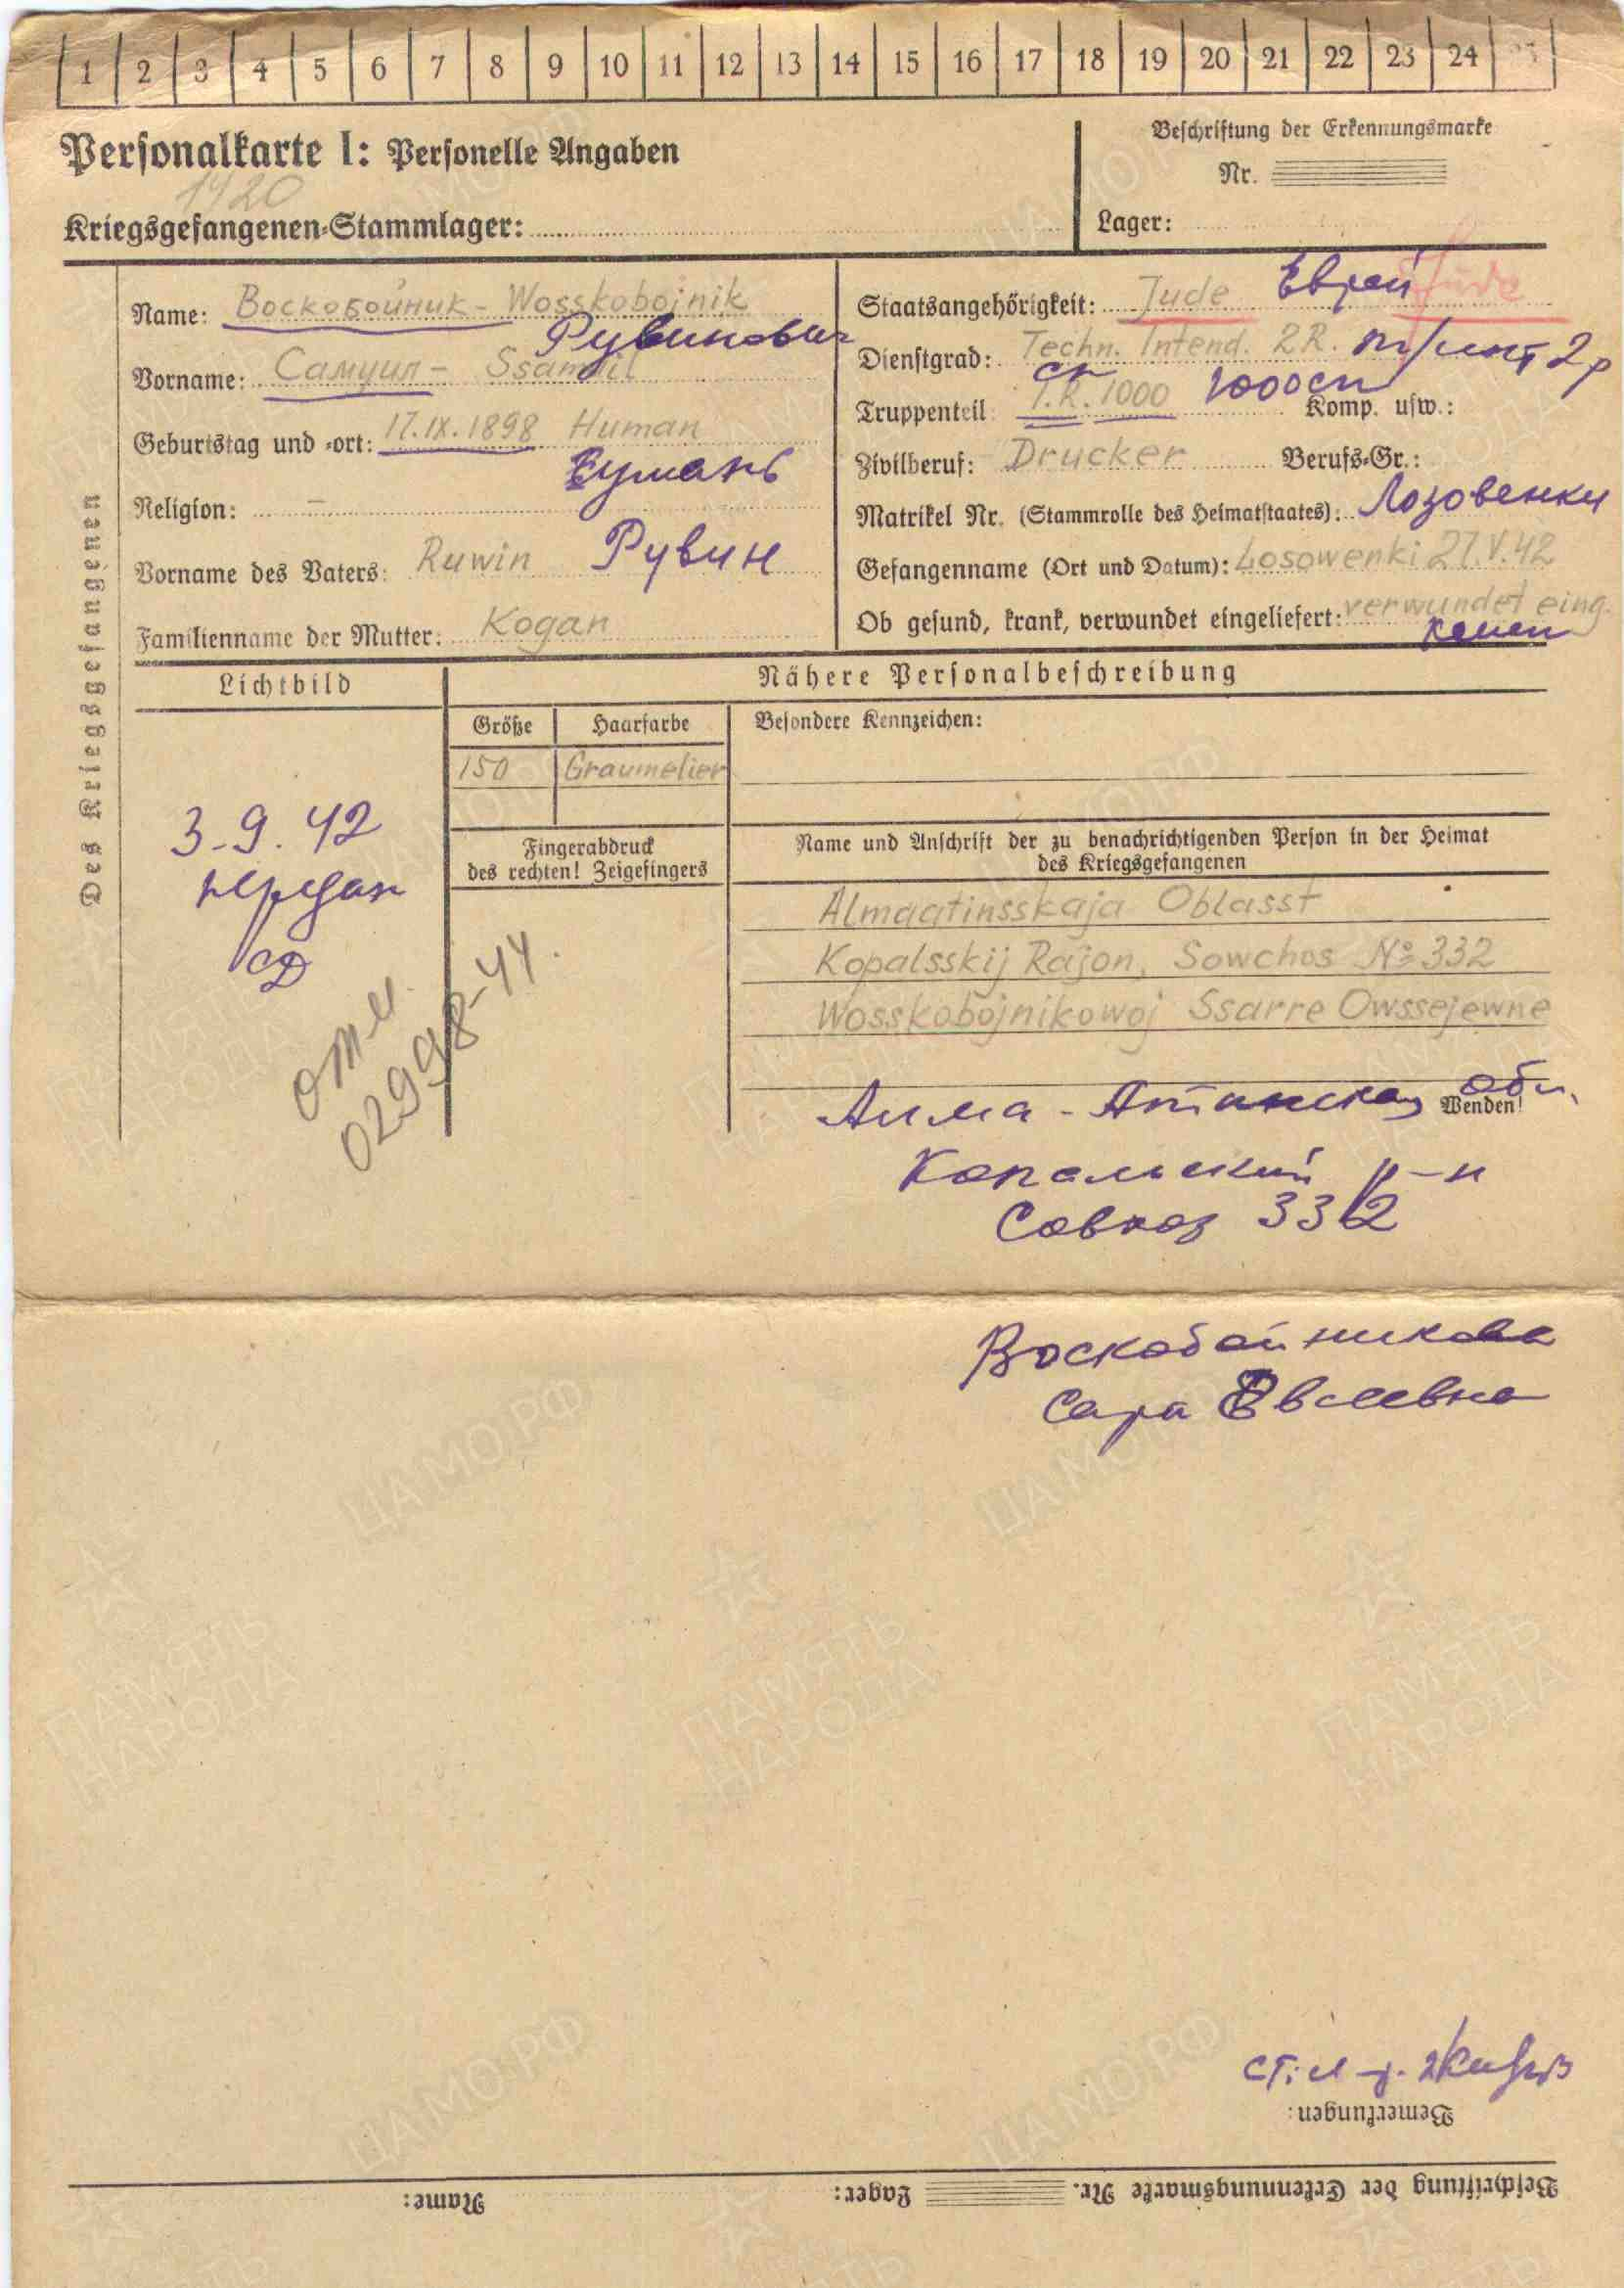 1 2 3 4 5 6 7 8 9 10 11 12 13 14 15 16 17 18 19 20 21 22 23 24 25
Personalkarte I: Personelle Angaben
1420
Kriegsgefangenen-Stammlager:
Beschriftung der Erkennungsmarke
Nr.
Lager:
Des Kriegsgefangenen
Name: Воскобойник - Wosskobojnik
Рувинович
Vorname: Самуил - Ssamuil
Geburtstag und -ort: 17.IX.1898 Human
Умань
Religion: –
Vorname des Vaters: Ruwin Рувин
Familienname der Mutter: Kogan
Staatsangehörigkeit: Jude Еврей Jude
Dienstgrad: Techn. Intend. 2R. т/инт 2р
Truppenteil I.R. 1000 сп 1000сп Komp. usw.:
Zivilberuf: Drucker Berufs-Gr.:
Matrikel Nr. (Stammrolle des Heimatstaates): Лозовенки
Gefangenname (Ort und Datum): Losowenki 27.V.42
Ob gesund, krank, verwundet eingeliefert: verwundet eing.
Lichtbild
Nähere Personalbeschreibung
Größe Haarfarbe Besondere Kennzeichen:
150 Graumelier
3-9.42
передан
СД
Fingerabdruck
des rechten! Zeigefingers
отм.
02998-44.
Name und Anschrift der zu benachrichtigenden Person in der Heimat
des Kriegsgefangenen
Almaatinsskaja Oblasst
Kopalsskij Rajon, Sowchos № 332
Wosskobojnikowoj Ssarre Owssejewne
Wenden!
Алма-Атинская обл.
Копальский р-н
Совхоз 332
Воскобойникова
Сара Евсеевна
Bemerkungen:
Beschriftung der Erkennungsmarke Nr. Lager: Name:
ЦАМО.РФ
ПАМЯТЬ
НАРОДА